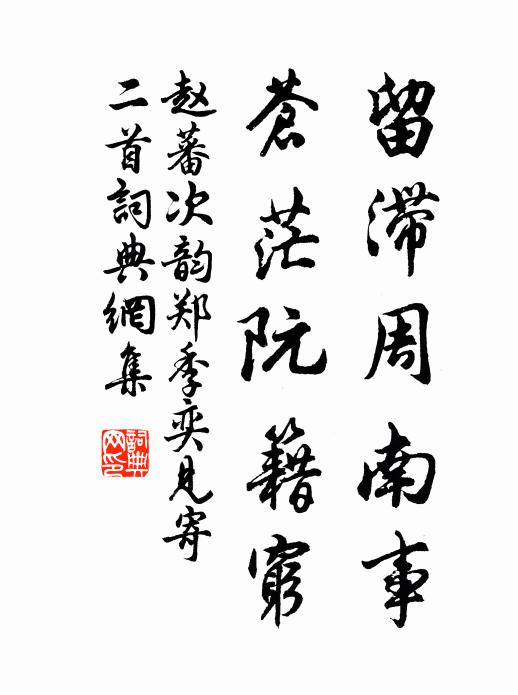 留滞周南事
蒼茫阮籍窮
赵蕃次韵郑季奕见寄
二首詞典網集
詞典网印